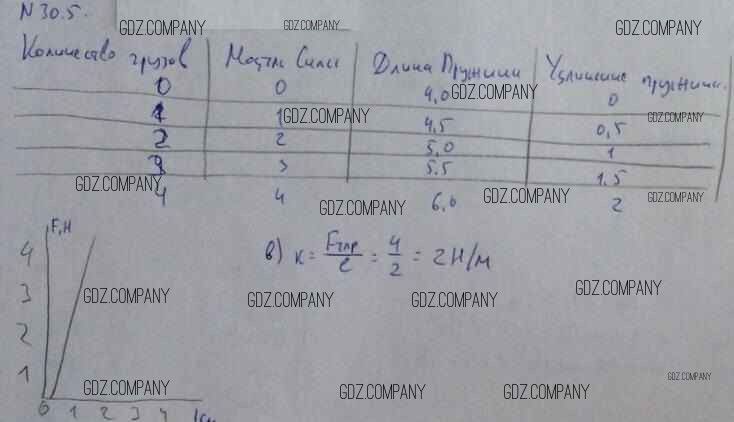 N 30.5.
GDZ.COMPANY GDZ.COMPANY GDZ.COMPANY
Количество грузов Модуль Силы Длина Пружины Удлинение пружины.
0 0 4,0 GDZ.COMPANY 0
1 1 GDZ.COMPANY 4,5 0,5 GDZ.COMPANY
2 2 5,0 1
3 3 5.5 1,5
GDZ.COMPANY
4 4 6,0 2
GDZ.COMPANY GDZ.COMPANY GDZ.COMPANY
F,H
4
в) K = Fупр / l = 4 / 2 = 2 Н/м
3 GDZ.COMPANY GDZ.COMPANY GDZ.COMPANY GDZ.COMPANY
2
1
GDZ.COMPANY GDZ.COMPANY GDZ.COMPANY GDZ.COMPANY
0 1 2 3 4 lсм